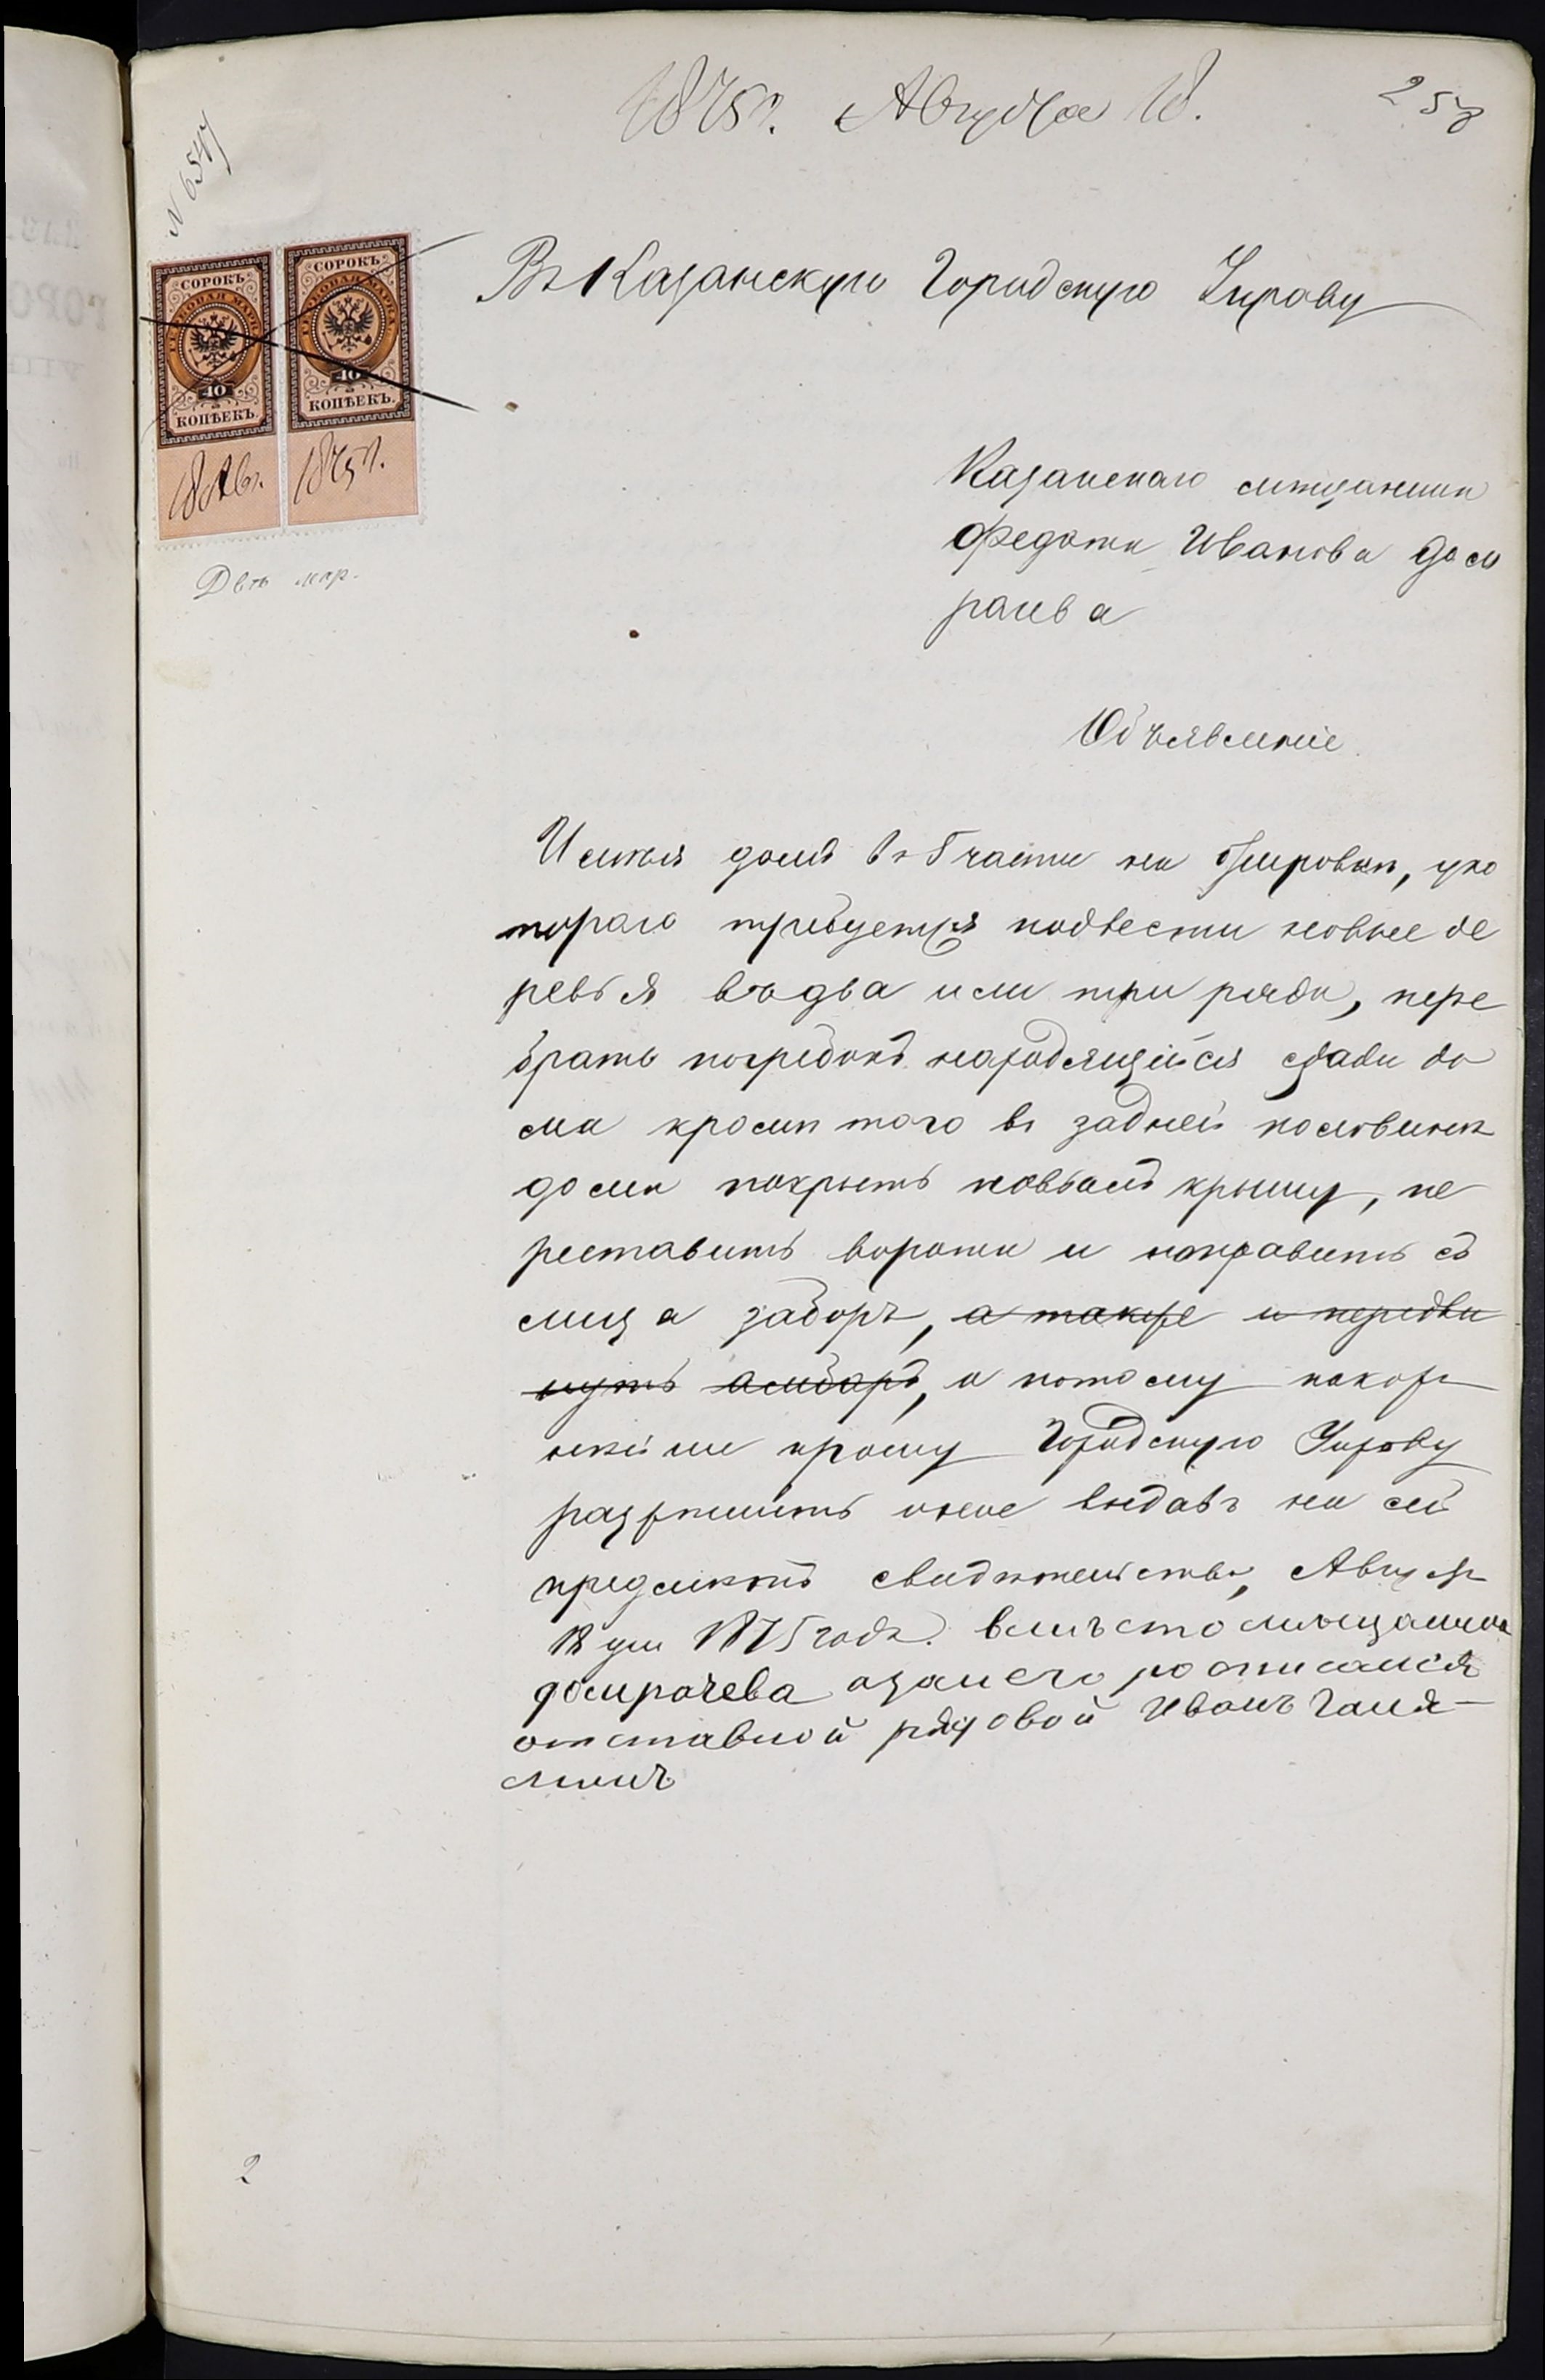 1875 г. Августа 18.
253
N 6547
СОРОКЪ
ГЕРБОВАЯ МАРКА
40
КОПѢЕКЪ.
СОРОКЪ
ГЕРБОВАЯ МАРКА
40
КОПѢЕКЪ.
18 Авг. 1875 г.
Двѣ мар.
Въ Казанскую Городскую Управу
Казанскаго мѣщанина
Федота Иванова Дом
рачева
Объявленіе
Имѣя домъ въ 5 части на, уко
тораго требуется подвести новые де
ревья въ два или три ряда, пере
брать погребокъ находящійся сзади до
ма кромѣ того въ задней половинѣ
дома покрыть новвымъ крышу, пе
реставить ворота и поправить съ
лица заборъ, а также и передви
нуть амбаръ, а потому покор
нѣйше прошу Городскую Управу
разрѣшить мне выдавъ на сей
предметъ свидѣтельство, Августа
18 дня 1875 года. вмѣсто мѣщанина
домрачева азанего росписался
отставной рядовой Иванъ Галя-
минъ
2